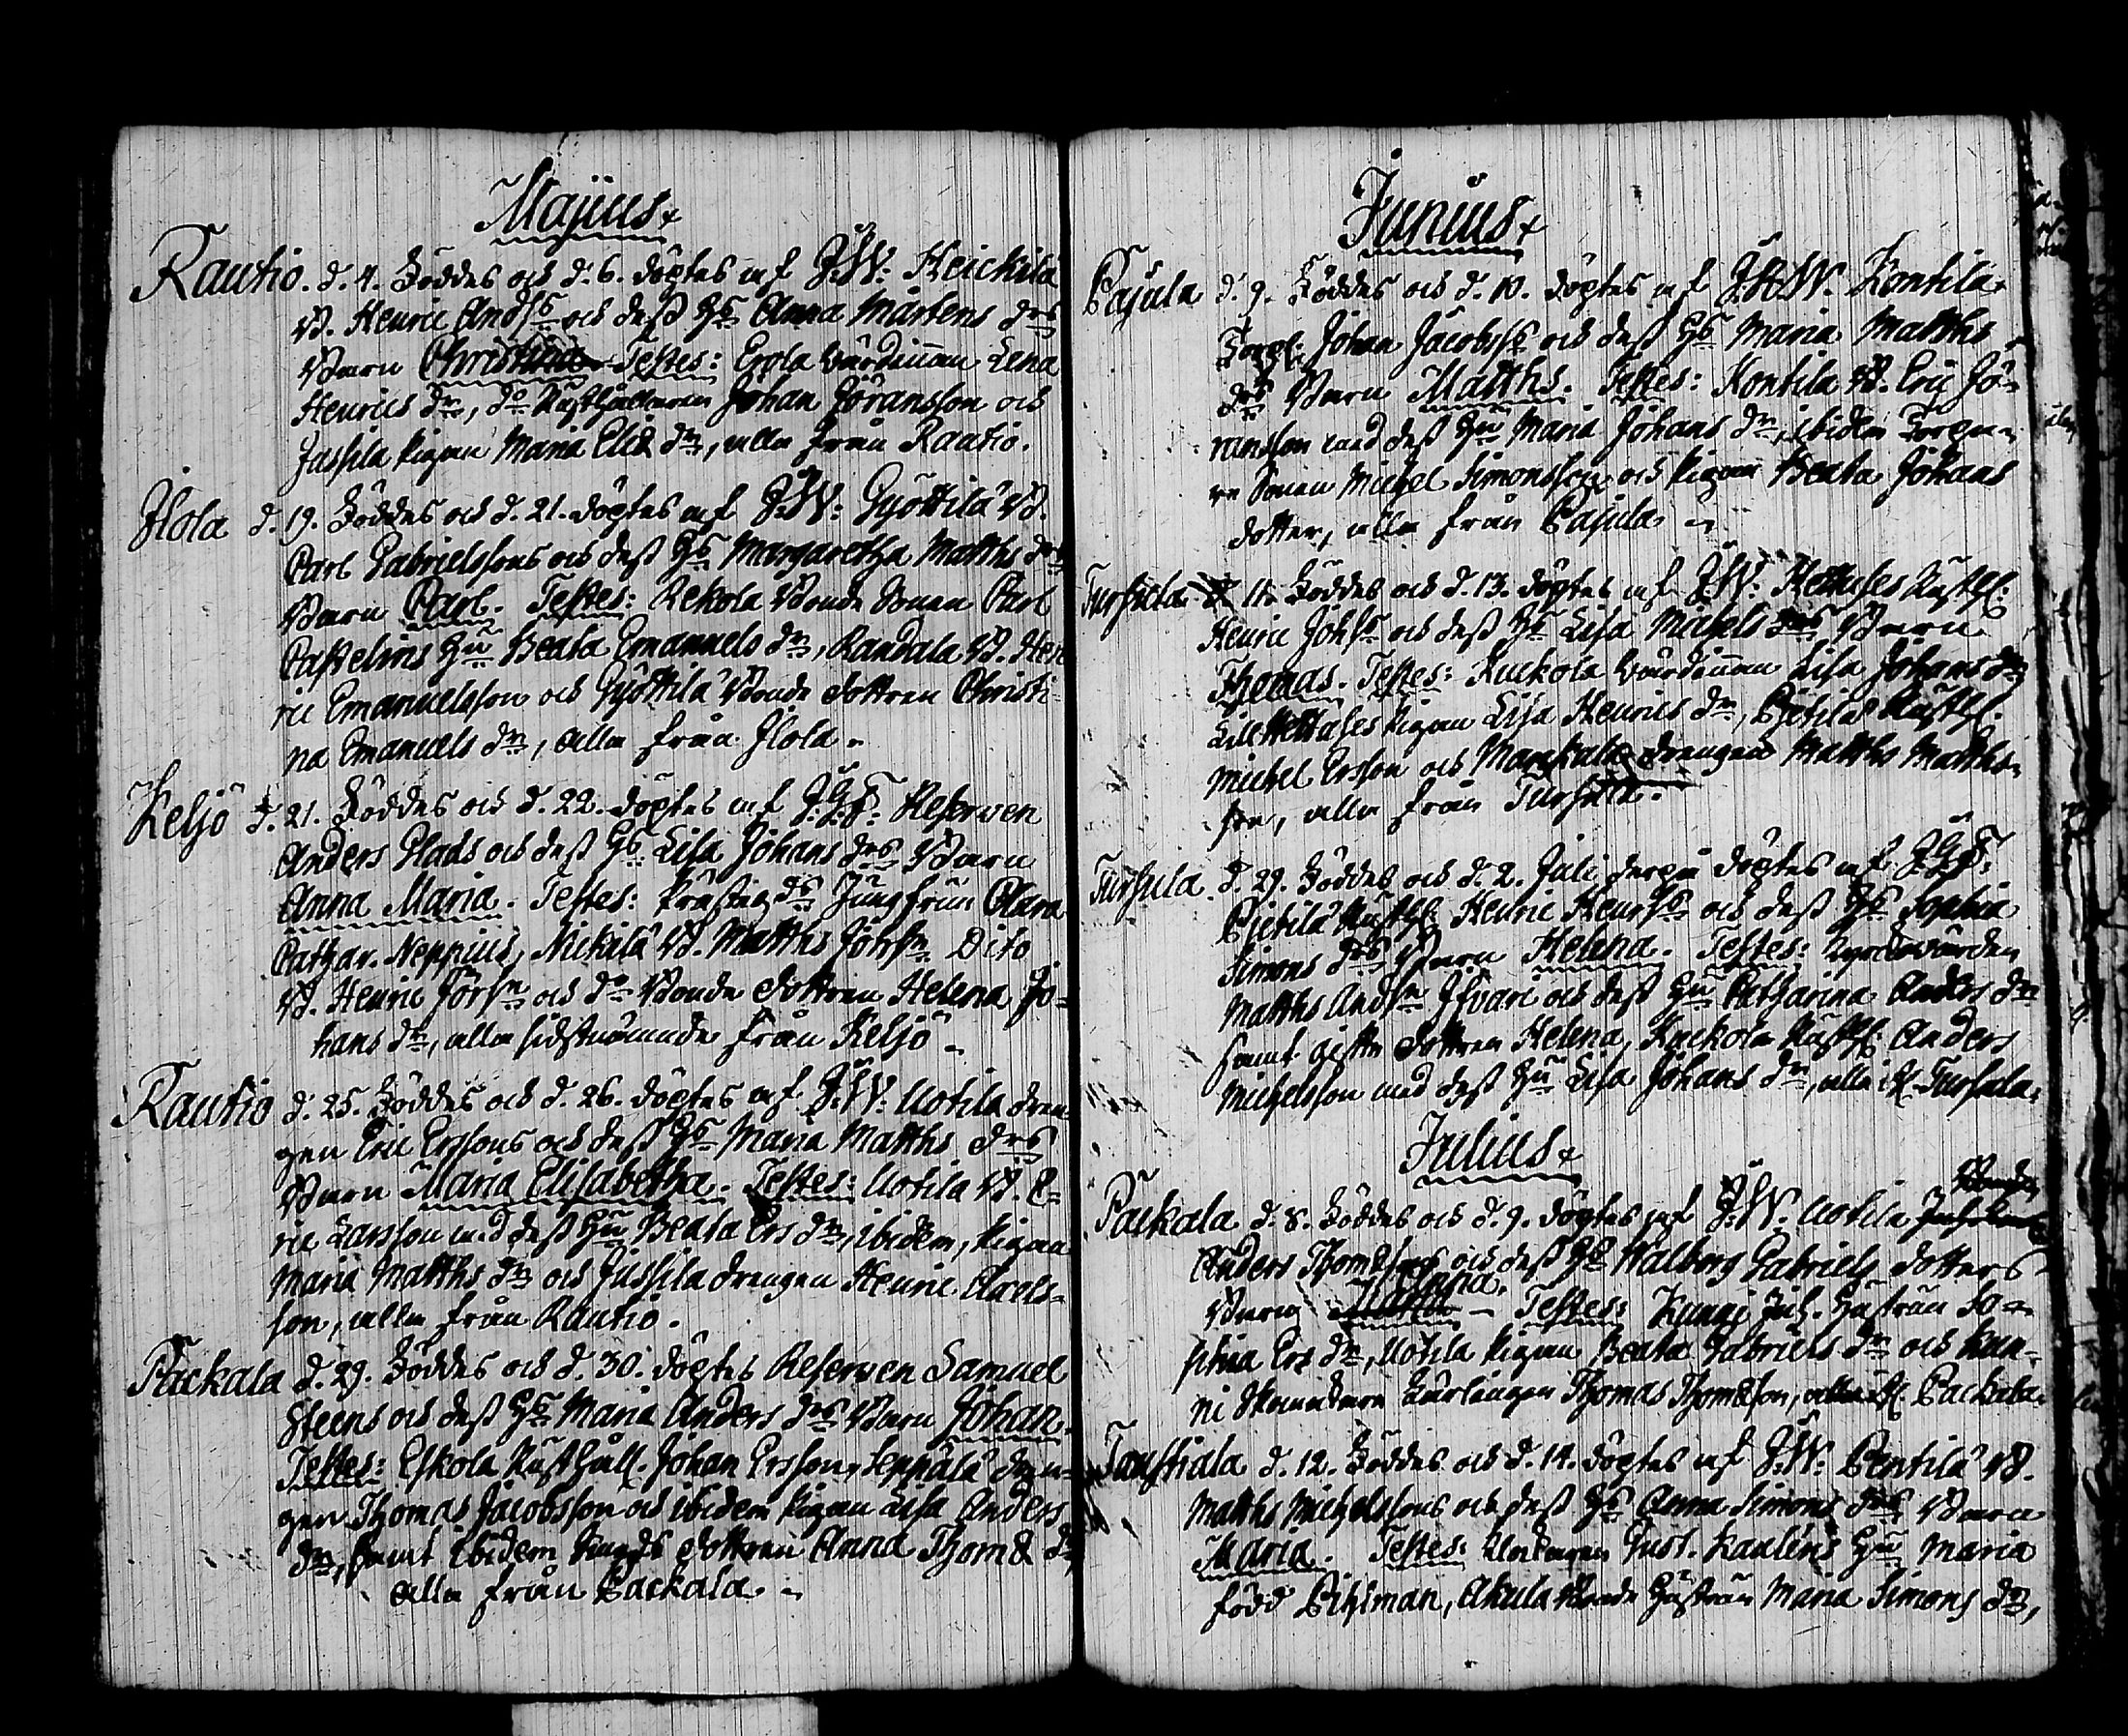 Majus
Rautio. d. 4. Föddes och d. 6. döptes af J. W: Heickilä
B. Henric Ands och dess Hs Anna Mårtens drs
Barn Christina Testes: Erola wärdinnan Lena
Henrics dr, do Rusthållaren Johan Jöransson och
Jussila pigan Maria Erics dr, alla från Rautio.
Ilola d. 19. Föddes och d. 21. döptes af J. W: Gyöttilä B.
Carl Gabrielssons och dess Hs Margaretha Matths drs
Barn Carl. Testes: Rekola Bonde Sonen Carl
Castelins Hu Beata Emanuels dr, Randala B. Hen
ric Emanuelsson och Gyöttilä Bonde dottren Christi-
na Emanuels dr, alla från Ilola.
Keljo d. 21. Föddes och d. 22. döptes af J. G. F. Reserven
Anders Glads och dess Hs Lisa Johans drs Barn
Anna Maria. Testes: Jungfrun Clara
Cathar. Neppius, Nickilä B. Matths Jörsn. Dito
B. Henric Jörsn och do Bonde dottren Helena Jo-
hans dr, alla sidstnämnde från Keljo
Rautio d. 25. Föddes och d. 26. döptes af J. W: Uotila dren-
gen Eric Erssons och dess Hs Maria Matths drs
Barn Maria Elisabetha. Testes: Uotila B. E-
ric Larsson med dess Hu Beata Ers dr, ibidem, pigan
Maria Matths dr och Jussila drengen Henric Carls-
son, alla från Rautio.
Packala d. 29. Föddes och d. 30. döptes Reserven Samuel
Steens och dess Hs Maria Anders drs Barn Johan.
Testes: Eskola Rusthåll. Johan Ersson, Seppälä dren-
gen Thomas Jacobsson och ibidem pigan Lisa Anders
dr, samt ibidem dottren Anna Thom& dr
alla från Packala.
Junius
Cajula d. 9. Föddes och d. 10. döptes af J. W. Kontila
Torp. Johan Jacobss och dess Hs Maria Matths
drs Barn Matths. Testes: Kontila B. Eric Jö-
ransson med dess Hu Maria Johans dr, ibidem Torpa-
re Sonen Michel Simonsson och pigan Beata Johans
dotter, alla från Cajula
Tursula d. 11. Föddes och d. 13. döptes af J. W: Rusth:
Henric Johs och dess Hs Lisa Michels drs Barn
Thomas. Testes: Kuckola wärdinnan Lisa Johans dr
Lill pigan Lisa Henrics dr, Pietilä Rusth.
Michel Ersson och drengen Matths Matths-
son, alla från Tursula.
Tursula. d. 29. Föddes och d. 2. Juli derpå döptes af J. G. F:
Pietilä Rusth: Henric Henrss och dess Hs Sophia
Simons drs Barn Helena. Testes: Kyrckowärden
Matths Andsn Ifvari och dess Hu Catharina Anders dr
samt gifta dottren Helena, Kuckola Rusth: Anders
Michelsson med dess Hu Lisa Johans dr, alla fr. Tursula.
Julius
Packala d. 8. Föddes och d. 9. döptes af J. W. Uotila
Anders Thom&sons och dess Hs Walborg Gabriels dotters
Anna.
Barn Testes: Kunni Inh. Hustrun So-
phia Ers dr, Uotila pigan Beata Gabriels dr och Kun-
ni Thomas Thom&son, alla fr Packala.
Taustiala d. 12. Föddes och d. 14. döptes af J. W: Pentilä B.
Matths Michelssons och dess Hs Anna Simons drs Barn
Maria. Testes: Klockaren Gust. Kauléns Hu Maria
född Bihlman, Akula Bonde Hustrun Maria Simons dr,